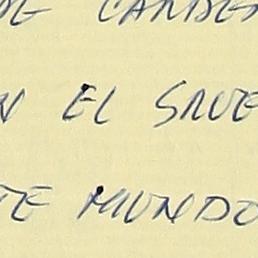 DE CARDE
N EL SAUE
TE MUNDO